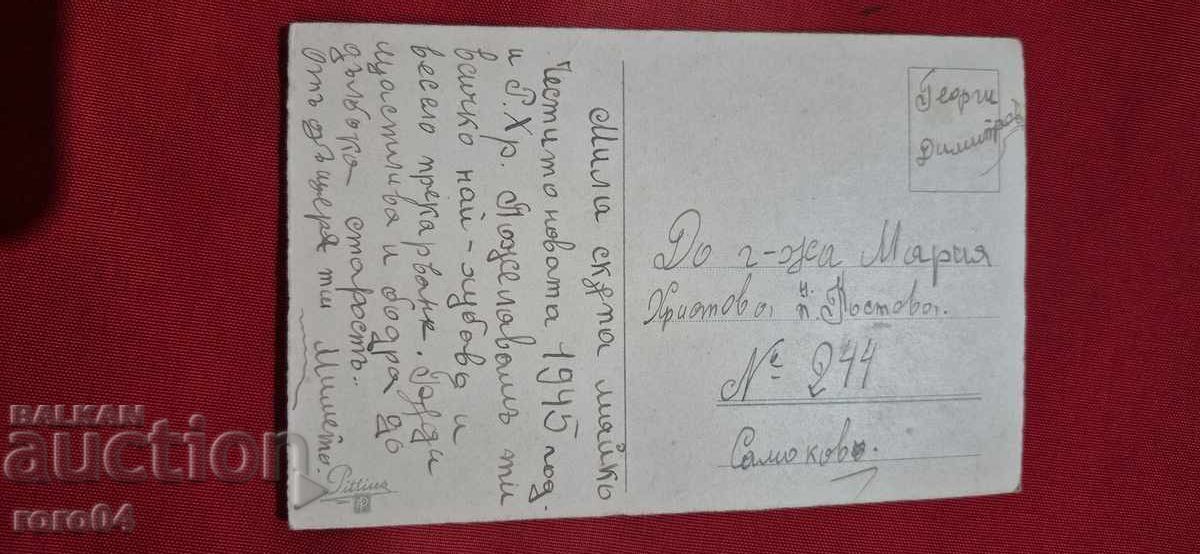 Мила скѫпа майко
Честито новата 1945 год.
и Р.Хр. Пожелавамъ ти
всичко най-хубаво и
весело прекарване. Бѫди
щастлива и бодра до
дълбока старость.
отъ дъщеря ти Мимето.
Георги
Димитров
До г-жа Мария
Христова, н. Постова.
№ 244
Самоковъ.
Pittius
BALKAN
auction
roro04